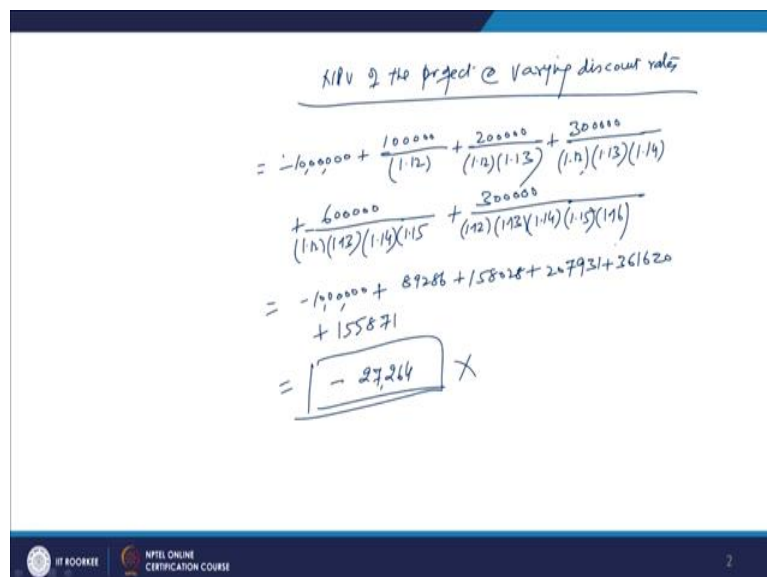 NPV of the project @ varying discount rates
= -10,00,000 + 100000/(1.12) + 200000/(1.12)(1.13) + 300000/(1.12)(1.13)(1.14)
+ 600000/(1.12)(1.13)(1.14)(1.15 + 300000/(1.12)(1.13)(1.14)(1.15)(1.16)
= -10,00,000 + 89286 + 158028 + 207931 + 361620
+ 155871
= - 27,264 X
IIT ROORKEE NPTEL ONLINE
CERTIFICATION COURSE
2